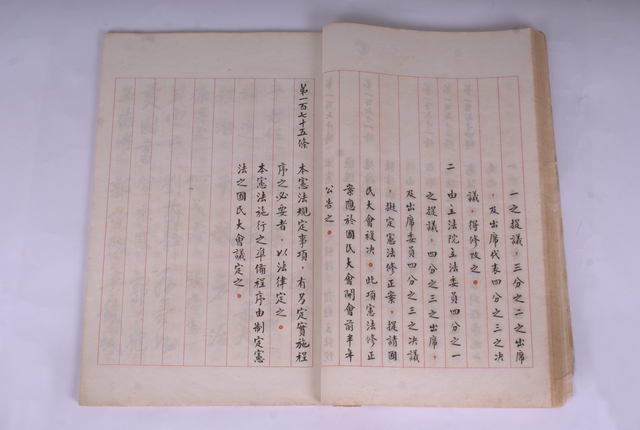 一之提議，三分之二之出席
，及出席代表四分之三之決
議，得修改之。
二　由立法院立法委員四分之一
之提議，四分之三之出席，
及出席委員四分之三之决議
，擬定憲法修正案，提請國
民大會複决。此項憲法修正
案應於國民大會開會前半年
公告之。
第一百七十五條　本憲法規定事項，有另定實施程
序之必要者，以法律定之。
本憲法施行之準備程序由制定憲
法之國民大會議定之。